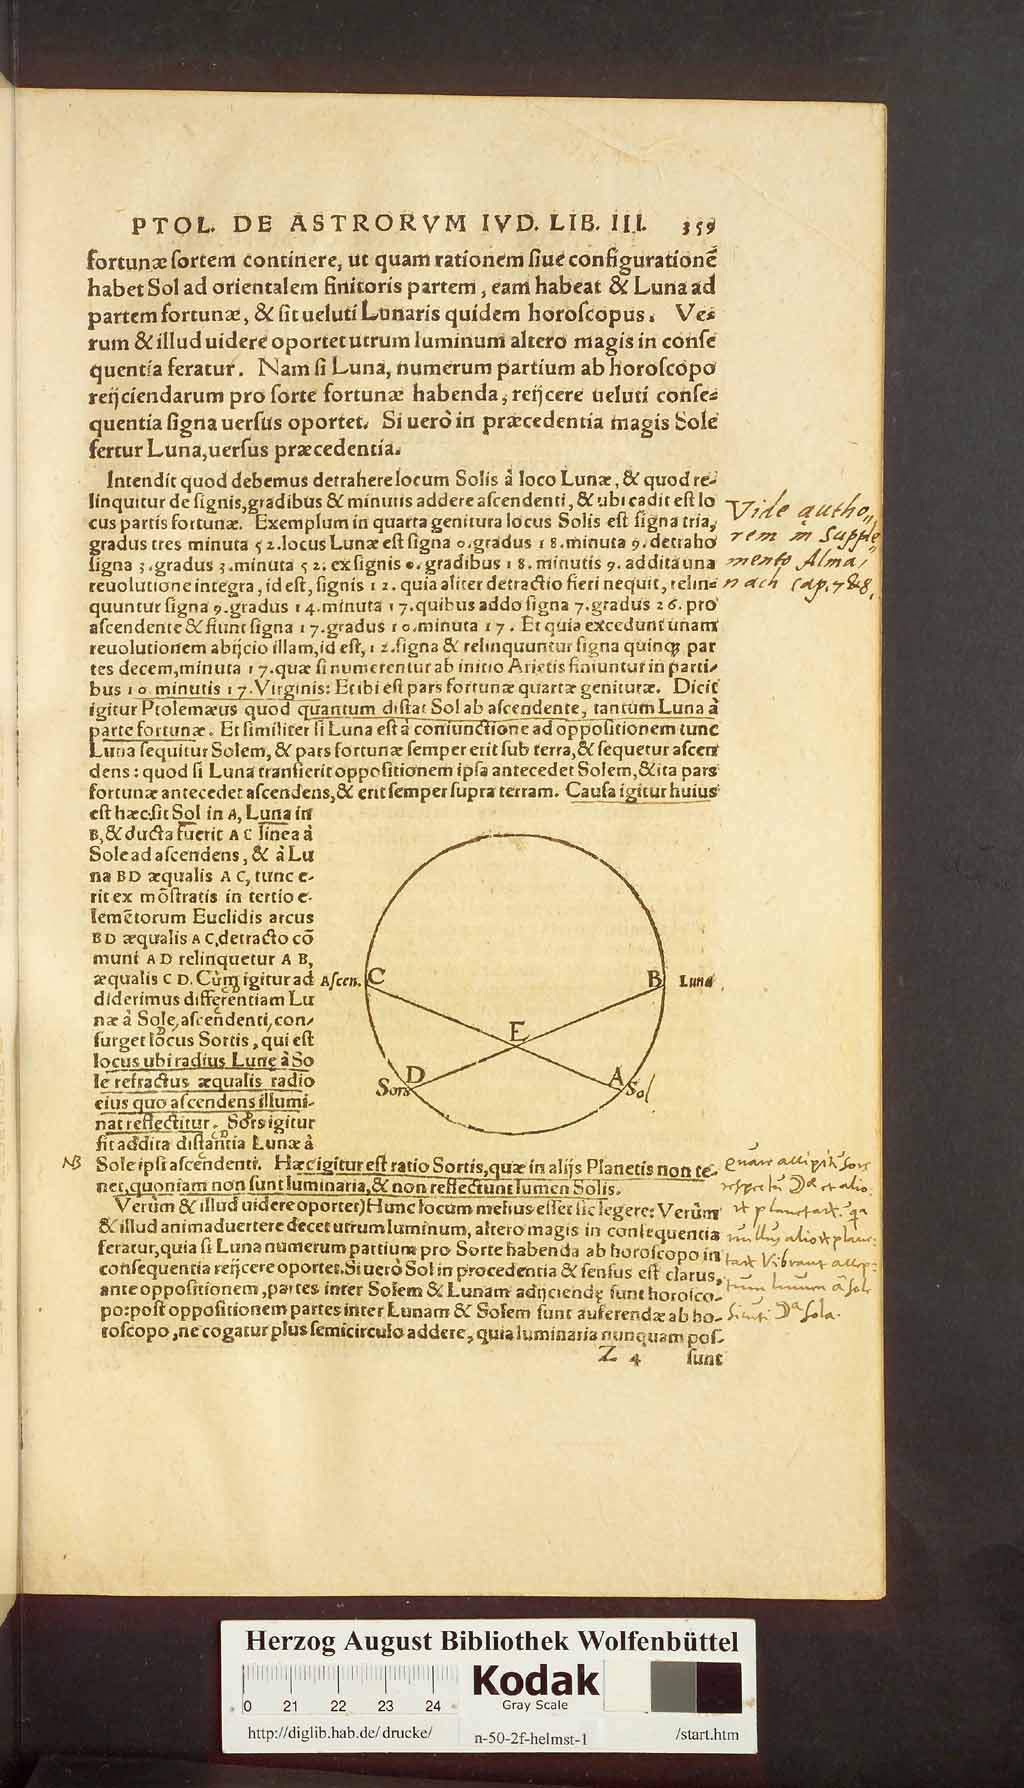 PTOL. DE ASTRORVM IVD. LIB. III. 359
fortunæ ſortem continere, ut quam rationem ſiue configurationẽ
habet Sol ad orientalem finitoris partem, eam habeat & Luna ad
partem fortunæ, & ſit ueluti Lunaris quidem horoſcopus. Ve-
rum & illud uidere oportet utrum luminum altero magis in conſe
quentia feratur. Nam ſi Luna, numerum partium ab horoſcopo
reijciendarum pro ſorte fortunæ habenda, reijcere ueluti conſe-
quentia ſigna uerſus oportet. Si uerò in præcedentia magis Sole
fertur Luna, uerſus præcedentia.
Intendit quod debemus detrahere locum Solis à loco Lunæ, & quod re-
linquitur de ſignis, gradibus & minutis addere aſcendenti, & ubi cadit eſt lo
cus partis fortunæ. Exemplum in quarta genitura locus Solis eſt ſigna tria,
gradus tres minuta 52. locus Lunæ eſt ſigna 0. gradus 18. minuta 9. detraho
ſigna 3. gradus 3. minuta 52. ex ſignis 0. gradibus 18. minutis 9. addita una
reuolutione integra, id eſt, ſignis 12. quia aliter detractio fieri nequit, relin-
quuntur ſigna 9. gradus 14. minuta 17. quibus addo ſigna 7. gradus 26. pro
aſcendente & fiunt ſigna 17. gradus 10. minuta 17. Et quia excedunt unam
reuolutionem abijcio illam, id eſt, 12. ſigna & relinquuntur ſigna quinq; par
tes decem, minuta 17. quæ ſi numerentur ab initio Arietis finiuntur in parti-
bus 10. minutis 17. Virginis: Et ibi eſt pars fortunæ quartæ genituræ. Dicit
igitur Ptolemæus quod quantum diſtat Sol ab aſcendente, tantum Luna à
parte fortunæ. Et ſimiliter ſi Luna eſt à coniunctione ad oppoſitionem tunc
Luna ſequitur Solem, & pars fortunæ ſemper erit ſub terra, & ſequetur aſcen
dens: quod ſi Luna tranſierit oppoſitionem ipſa antecedet Solem, & ita pars
fortunæ antecedet aſcendens, & erit ſemper ſupra terram. Cauſa igitur huius
eſt hæc: ſit Sol in A, Luna in
B, & ducta fuerit A C linea à
Sole ad aſcendens, & à Lu
na B D æqualis A C, tunc e-
rit ex mõſtratis in tertio e-
lemẽtorum Euclidis arcus
B D æqualis A C, detracto cõ
muni A D relinquetur A B,
æqualis C D. Cùm igitur ad
diderimus differentiam Lu
næ à Sole, aſcendenti, con-
ſurget locus Sortis, qui eſt
locus ubi radius Lunę à So
le refractus æqualis radio
eius quo aſcendens illumi-
nat reflectitur. Sors igitur
fit addita diſtantia Lunæ à
Aſcen. C
B Luna
E
Sors D
A Sol
Sole ipſi aſcendenti. Hæc igitur eſt ratio Sortis, quæ in alijs Planetis non te-
net, quoniam non ſunt luminaria, & non reflectunt lumen Solis.
Verùm & illud uidere oportet) Hunc locum melius eſſet ſic legere: Verùm
& illud animaduertere decet utrum luminum, altero magis in conſequentia
feratur, quia ſi Luna numerum partium pro Sorte habenda ab horoſcopo in
conſequentia reijcere oportet. Si uerò Sol in procedentia & ſenſus eſt clarus,
ante oppoſitionem, partes inter Solem & Lunam adijciendę ſunt horoſco-
po: poſt oppoſitionem partes inter Lunam & Solem ſunt auferendæ ab ho-
roſcopo, ne cogatur plus ſemicirculo addere, quia luminaria nunquam poſ-
Z 4 ſunt
Vide autho,,
rem in Supple,
mento Alma,
nach Cap. 7 & 8.
NB
Herzog August Bibliothek Wolfenbüttel
0 21 22 23 24
Kodak
Gray Scale
http://diglib.hab.de/drucke/ n-50-2f-helmst-1 /start.htm